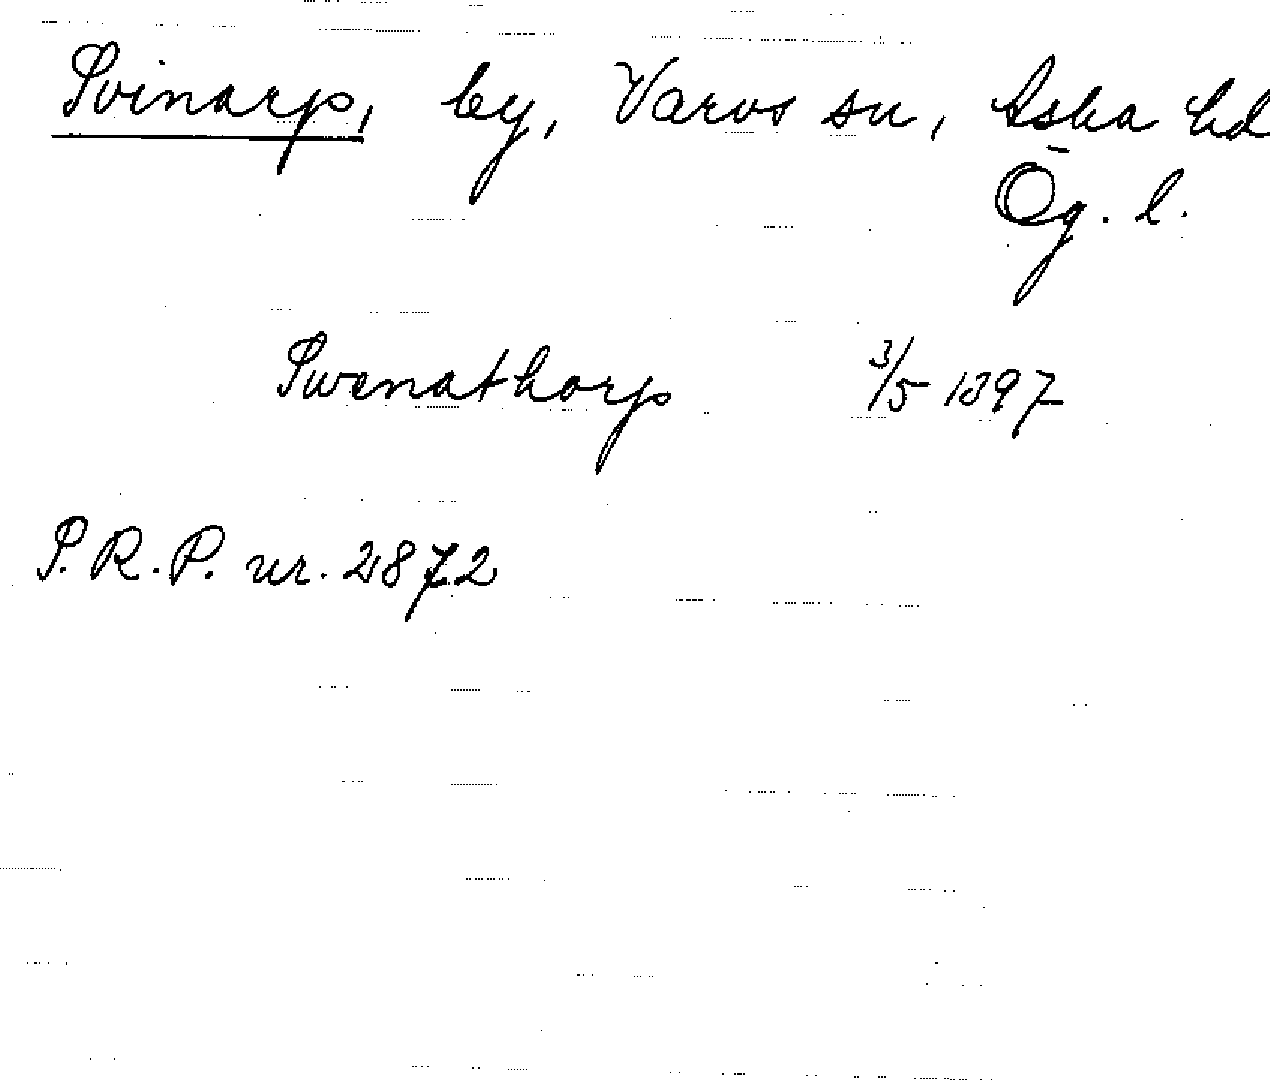 Svinarp, by, Varvs sn, Aska hd
Ög. l.
Swenathorp 3/5 1397
S.R.P. nr. 2872